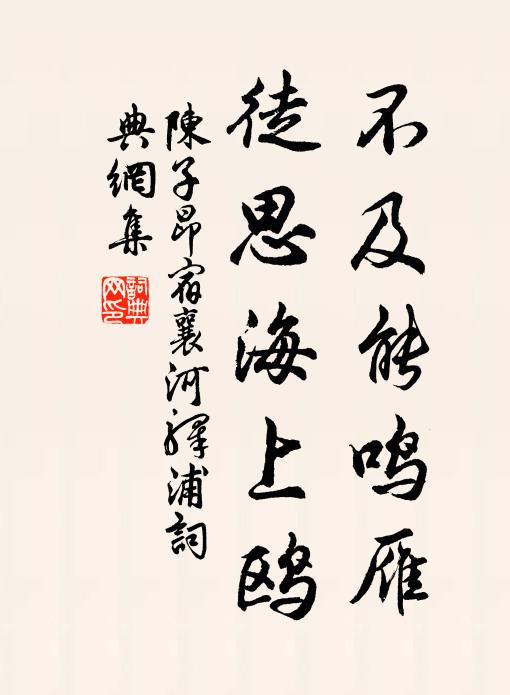 不及能鸣雁
徒思海上鸥
陳子昂宿襄河驛浦詞
典網集
詞典网印